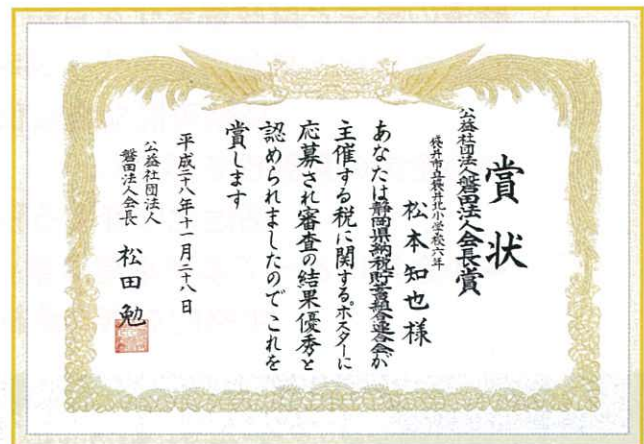 賞状
公益社団法人磐田法人会長賞
袋井市立袋井北小学校六年
松本知也様
あなたは静岡県納税貯蓄組合連合会が
主催する税に関するポスターに
応募され審査の結果優秀と
認められましたのでこれを
賞します
平成二十八年十一月二十八日
公益社団法人
磐田法人会長
松田勉